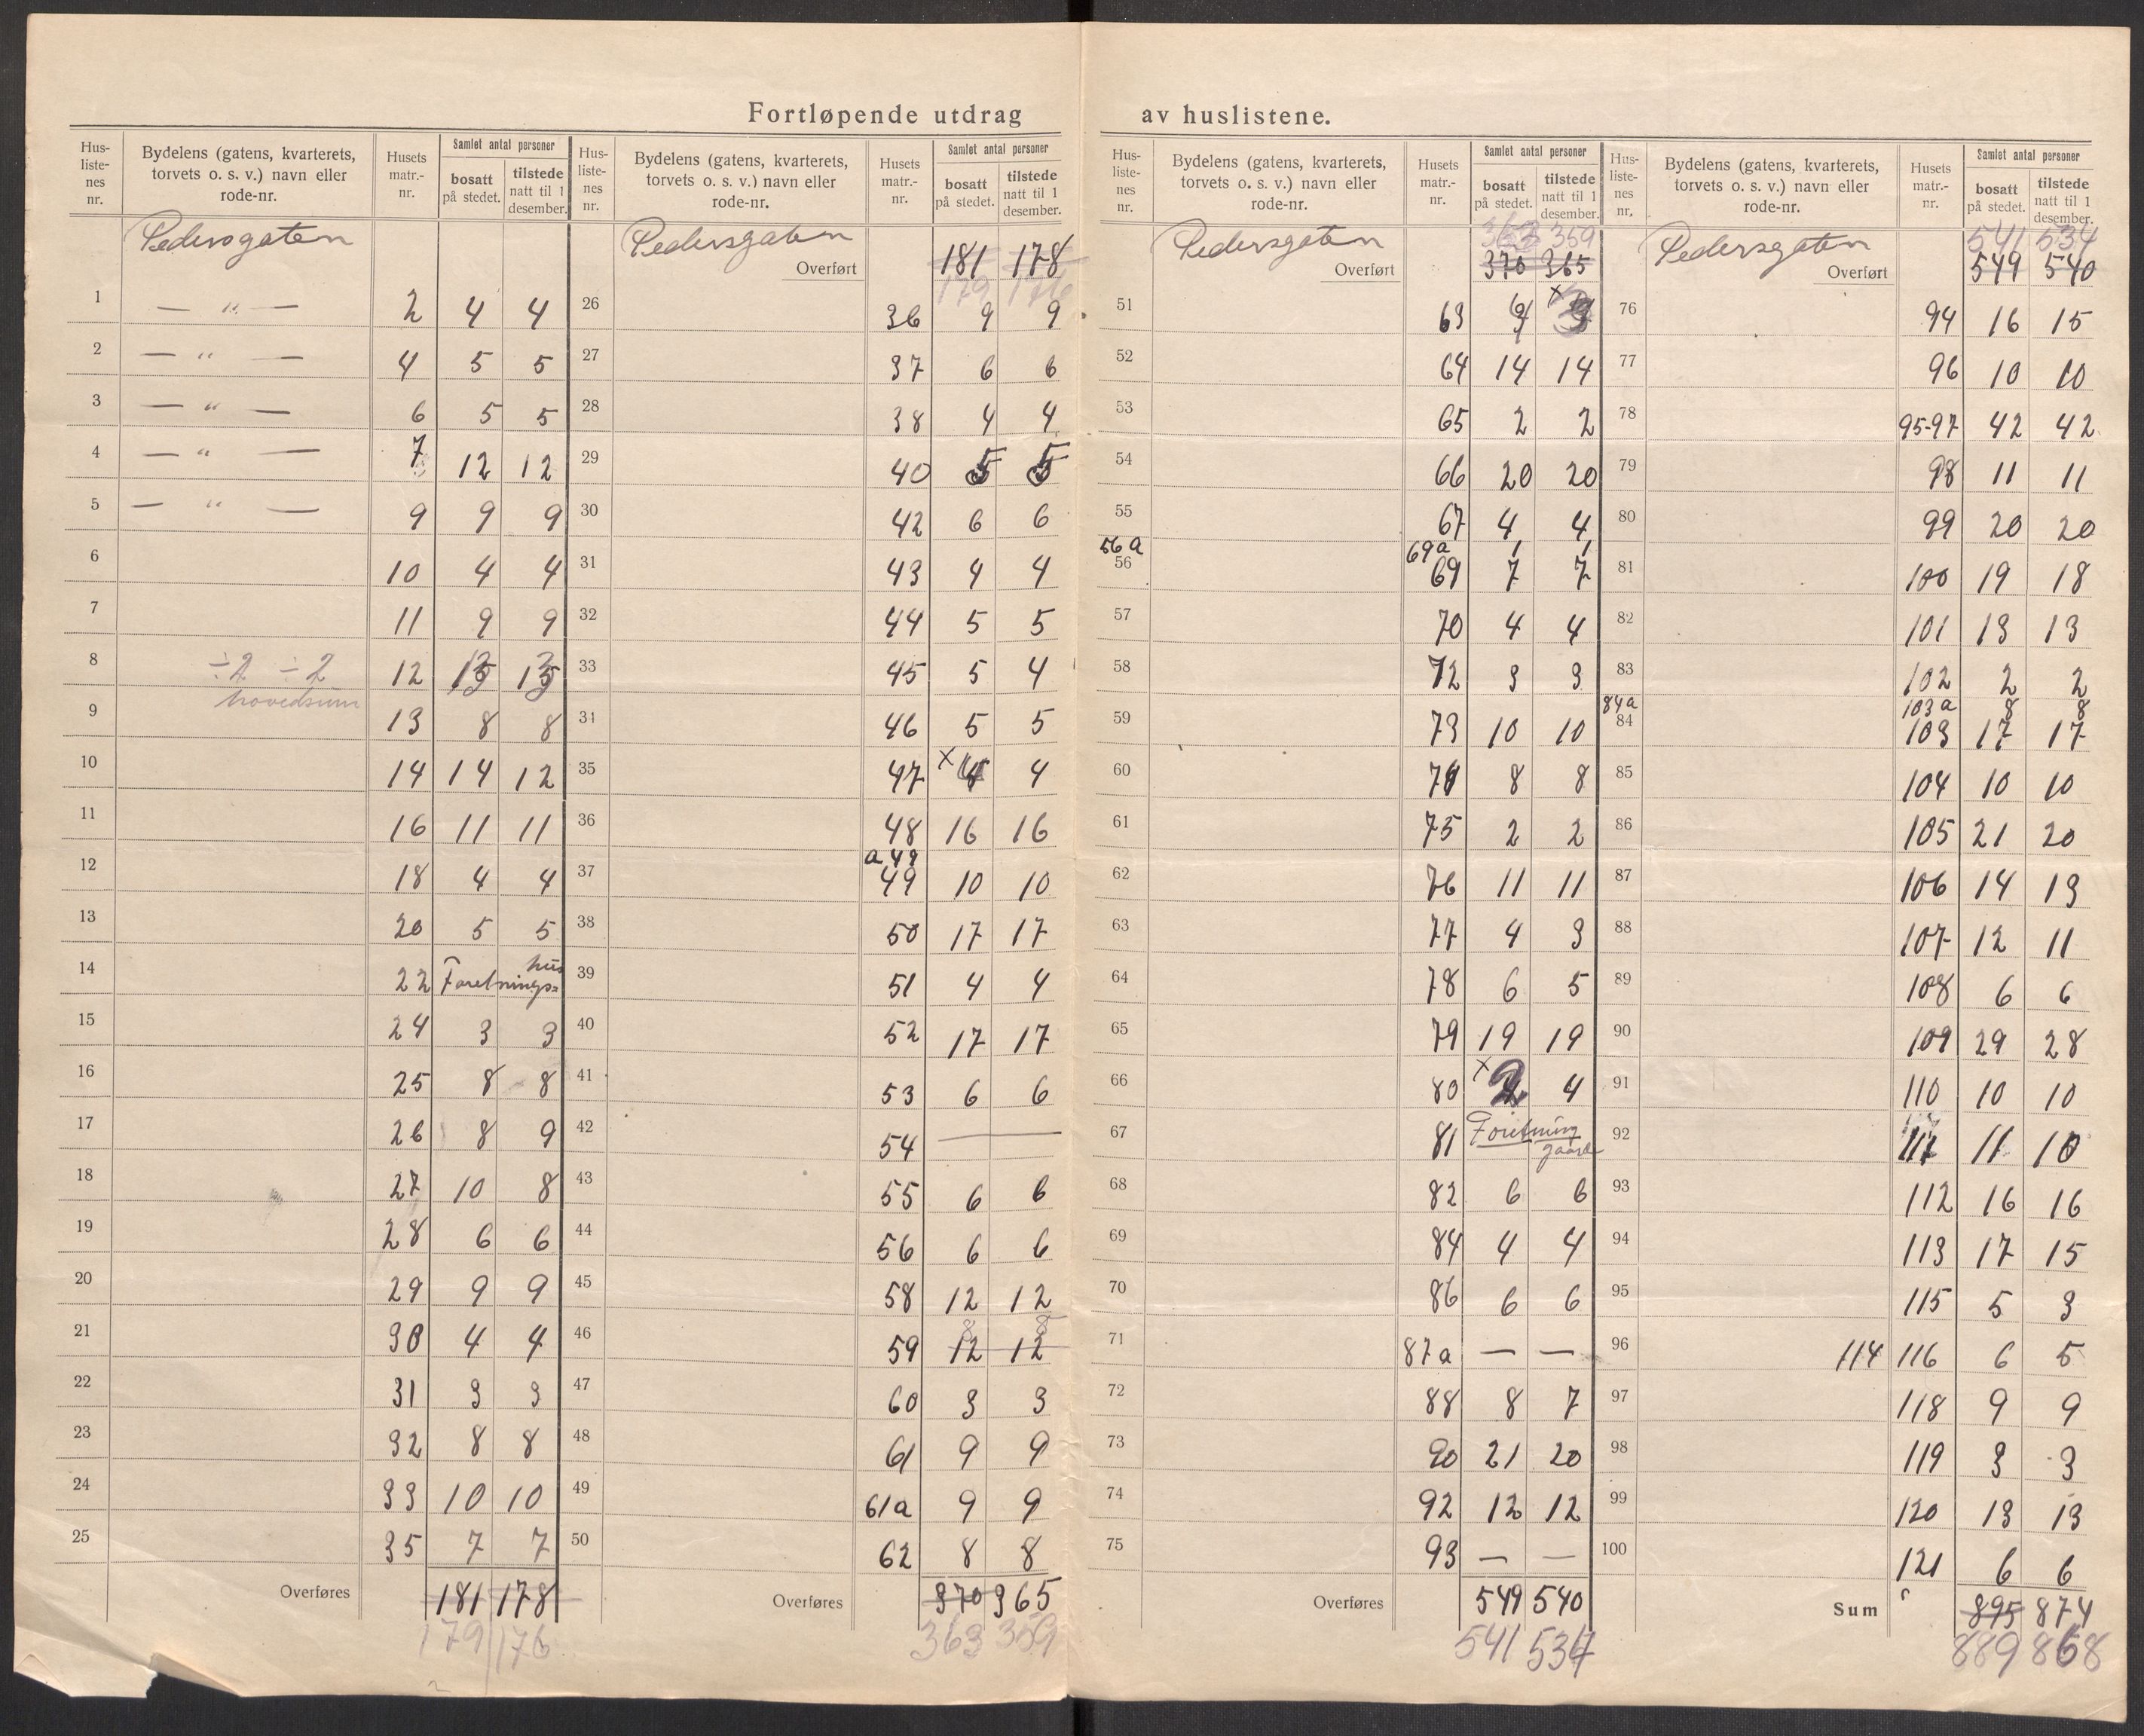 Fortløpende utdrag av huslistene.
Hus-listenes nr. | Bydelens (gatens, kvarterets, torvets o. s. v.) navn eller rode-nr. | Husets matr.-nr. | Samlet antal personer | bosatt på stedet. | tilstede natt til 1 desember.
Pedersgaten
1 — „ — 2 4 4
2 — „ — 4 5 5
3 — „ — 6 5 5
4 — „ — 7 12 12
5 — „ — 9 9 9
6 10 4 4
7 11 9 9
8 ÷2 ÷2 12 13 13
hovedsum
9 13 8 8
10 14 14 12
11 16 11 11
12 18 4 4
13 20 5 5
14 22 Foretnings= hus
15 24 3 3
16 25 8 8
17 26 8 9
18 27 10 8
19 28 6 6
20 29 9 9
21 30 4 4
22 31 3 3
23 32 8 8
24 33 10 10
25 35 7 7
Overføres 181 178
179 176
Hus-listenes nr. | Bydelens (gatens, kvarterets, torvets o. s. v.) navn eller rode-nr. | Husets matr.-nr. | Samlet antal personer | bosatt på stedet. | tilstede natt til 1 desember.
Pedersgaten
Overført 181 178
179 176
26 36 9 9
27 37 6 6
28 38 4 4
29 40 5 5
30 42 6 6
31 43 4 4
32 44 5 5
33 45 5 4
34 46 5 5
35 47 x 4
36 48 16 16
a 49
37 49 10 10
38 50 17 17
39 51 4 4
40 52 17 17
41 53 6 6
42 54 —
43 55 6 6
44 56 6 6
45 58 12 12
8 8
46 59 12 12
47 60 3 3
48 61 9 9
49 61a 9 9
50 62 8 8
Overføres 370 365
363 359
Hus-listenes nr. | Bydelens (gatens, kvarterets, torvets o. s. v.) navn eller rode-nr. | Husets matr.-nr. | Samlet antal personer | bosatt på stedet. | tilstede natt til 1 desember.
Pedersgaten 363 359
Overført 370 365
51 63 9 x 3
52 64 14 14
53 65 2 2
54 66 20 20
55 67 4 4
56a 69a 1 1
56 69 7 7
57 70 4 4
58 72 3 3
59 73 10 10
60 74 8 8
61 75 2 2
62 76 11 11
63 77 4 3
64 78 6 5
65 79 19 19
66 80 x 2 4
67 81 Foretning gaard
68 82 6 6
69 84 4 4
70 86 6 6
71 87a — —
72 88 8 7
73 90 21 20
74 92 12 12
75 93 — —
Overføres 549 540
541 534
Hus-listenes nr. | Bydelens (gatens, kvarterets, torvets o. s. v.) navn eller rode-nr. | Husets matr.-nr. | Samlet antal personer | bosatt på stedet. | tilstede natt til 1 desember.
Pedersgaten 541 534
Overført 549 540
76 94 16 15
77 96 10 10
78 95-97 42 42
79 98 11 11
80 99 20 20
81 100 19 18
82 101 13 13
83 102 2 2
84a 103a 8 8
84 103 17 17
85 104 10 10
86 105 21 20
87 106 14 13
88 107 12 11
89 108 6 6
90 109 29 28
91 110 10 10
92 111 11 10
93 112 16 16
94 113 17 15
95 115 5 3
96 114 116 6 5
97 118 9 9
98 119 3 3
99 120 13 13
100 121 6 6
Sum 895 874
889 868